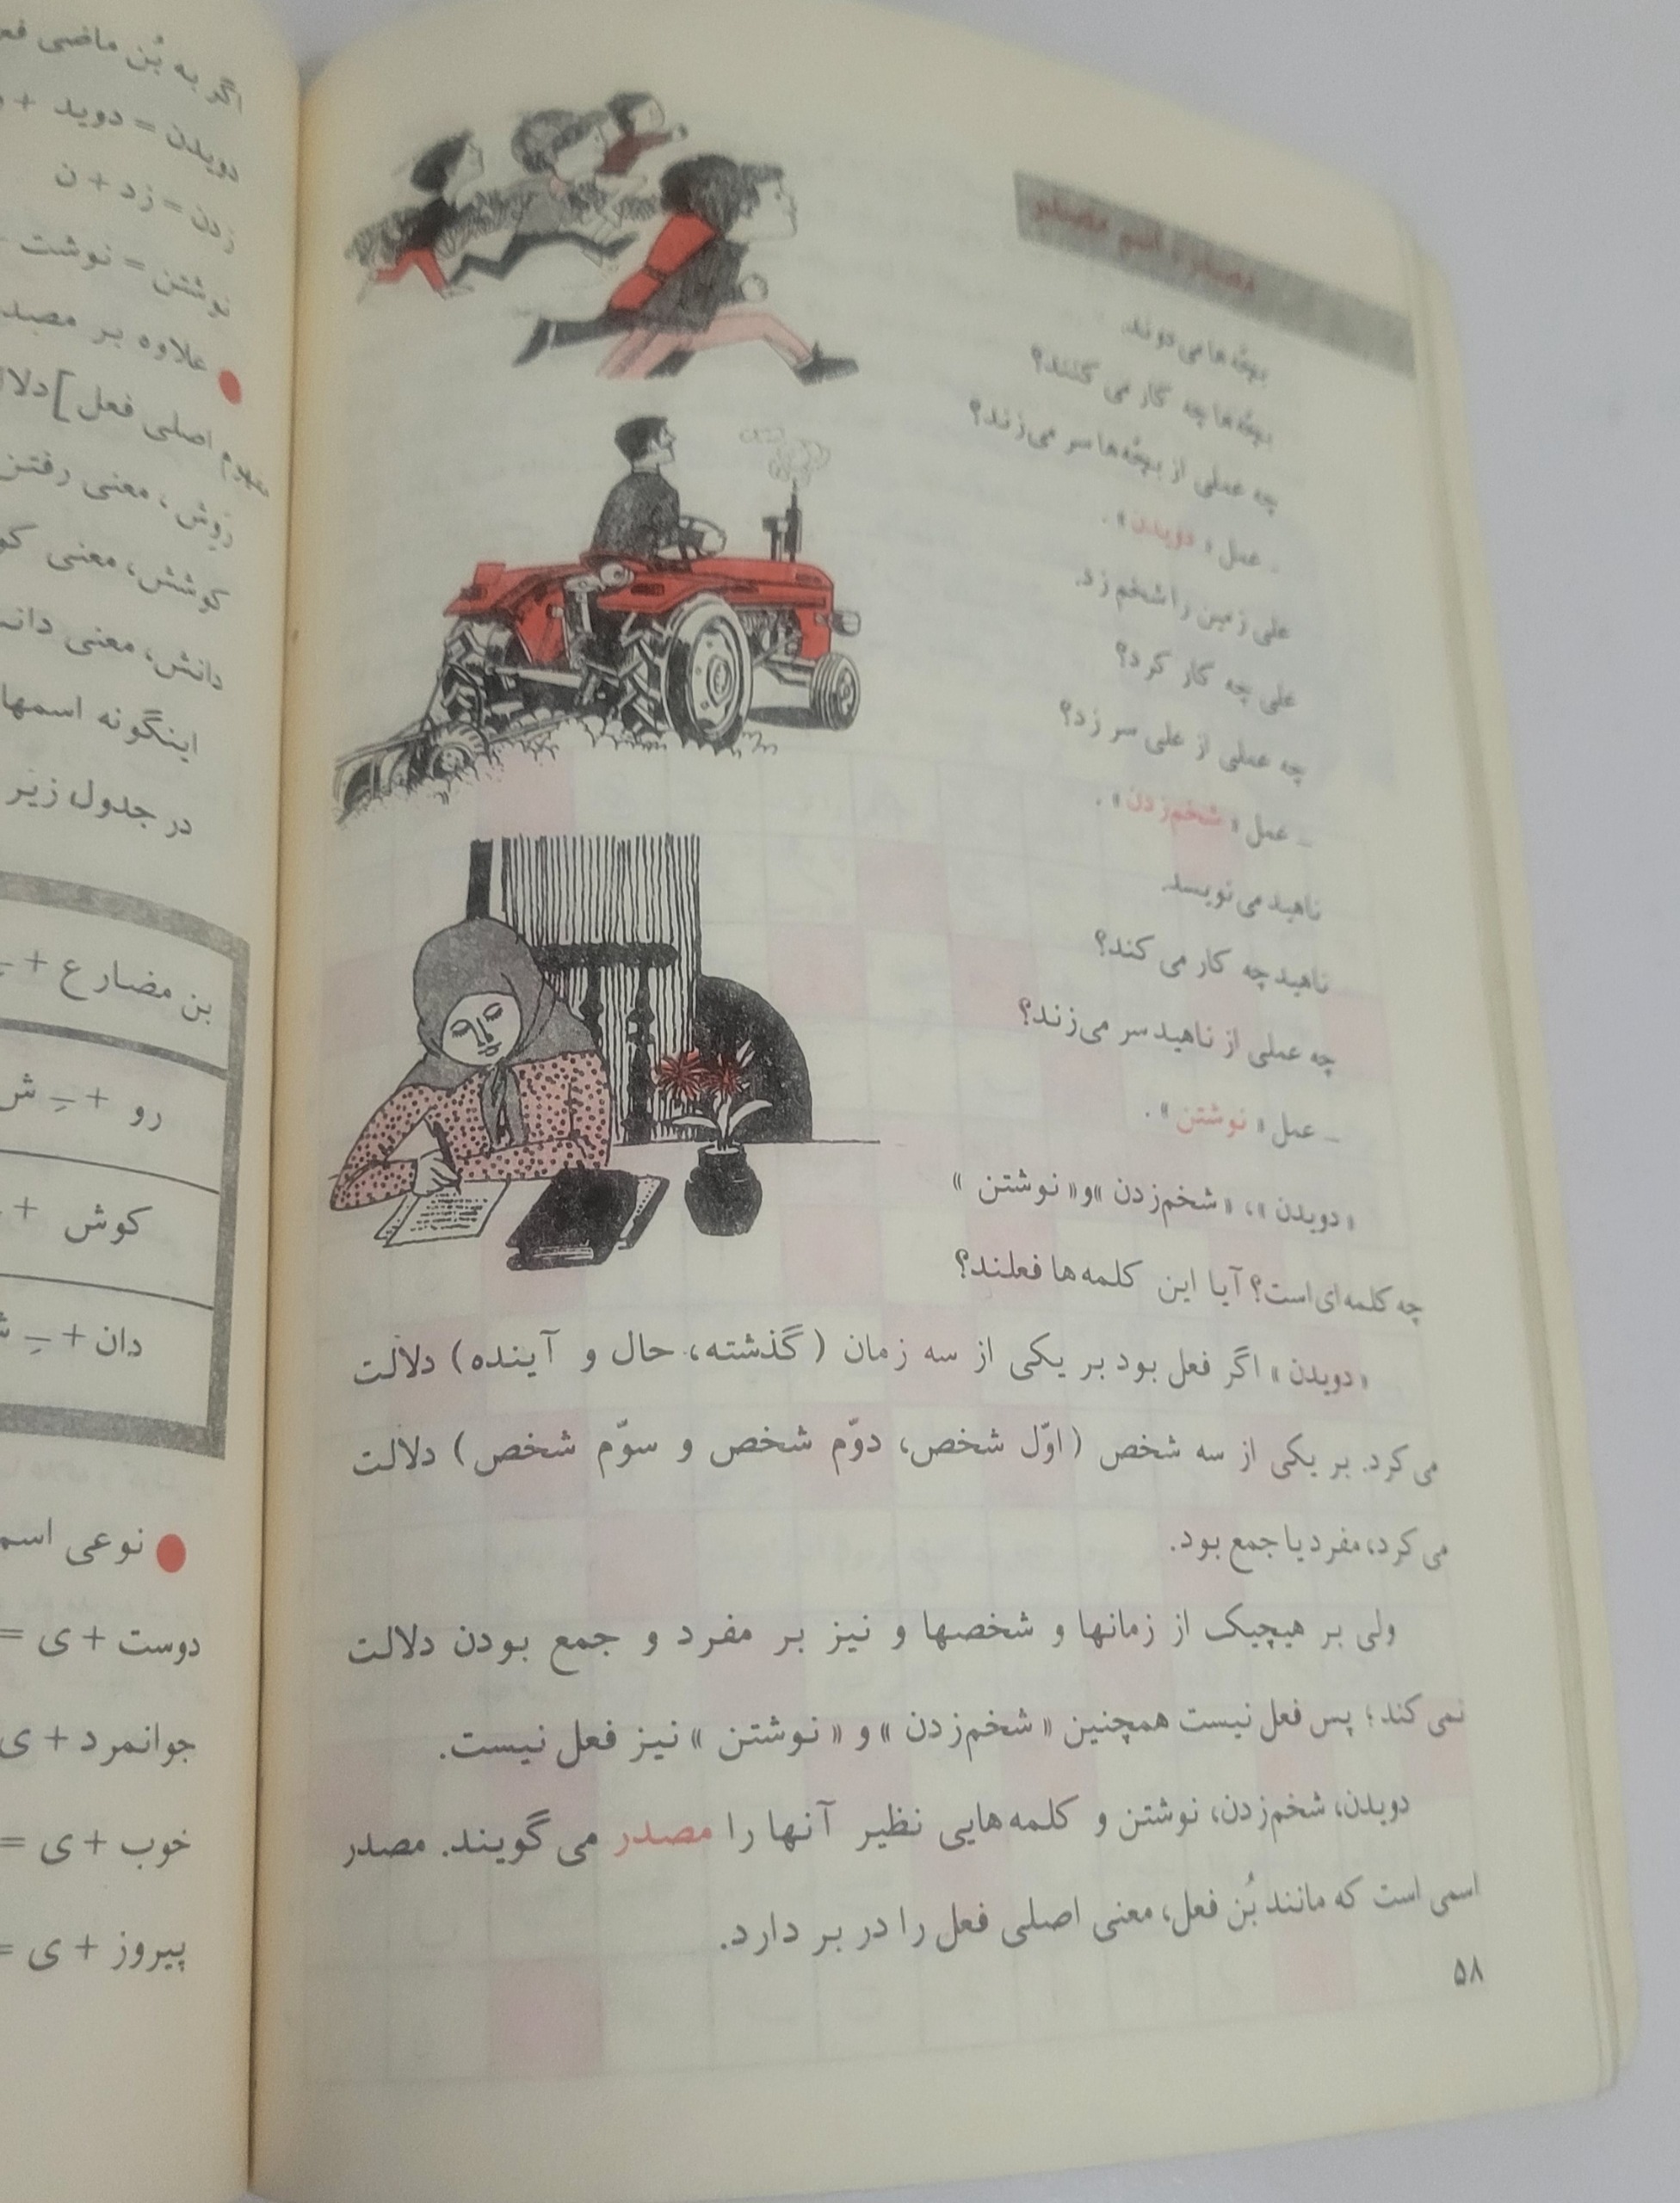 مصدر، اسم مصدر
بچّه‌ها می‌دوند.
بچّه‌ها چه کار می کنند؟
چه عملی از بچّه‌ها سر می‌زند؟
ـ عمل «دویدن».
علی زمین را شخم زد.
علی چه کار کرد؟
چه عملی از علی سر زد؟
ـ عمل «شخم‌زدن».
ناهید می‌نویسد.
ناهید چه کار می کند؟
چه عملی از ناهید سر می‌زند؟
ـ عمل «نوشتن».
«دویدن»، «شخم‌زدن» و «نوشتن»
چه کلمه‌ای است؟ آیا این کلمه‌ها فعلند؟
«دویدن» اگر فعل بود بر یکی از سه زمان (گذشته، حال و آینده) دلالت
می کرد. بر یکی از سه شخص (اوّل شخص، دوّم شخص و سوّم شخص) دلالت
می کرد، مفرد یا جمع بود.
ولی بر هیچیک از زمانها و شخصها و نیز بر مفرد و جمع بودن دلالت
نمی کند؛ پس فعل نیست همچنین «شخم‌زدن» و «نوشتن» نیز فعل نیست.
دویدن، شخم‌زدن، نوشتن و کلمه‌هایی نظیر آنها را مصدر می گویند. مصدر
اسمی است که مانند بُن فعل، معنی اصلی فعل را در بر دارد.
۵۸
اگر به بُن ماضی
دویدن = دوید +
زدن = زد + ن
نوشتن = نوشت
علاوه بر
اصلی فعل]
رَوِش، معنی رفتن
کوشش، معنی
دانش، معنی
اینگونه اسمها
در جدول زیر
بن مضارع +
رو + ـِ ش
کوش +
دان + ـِ
نوعی
دوست + ی =
جوانمرد + ی
خوب + ی =
پیروز + ی =